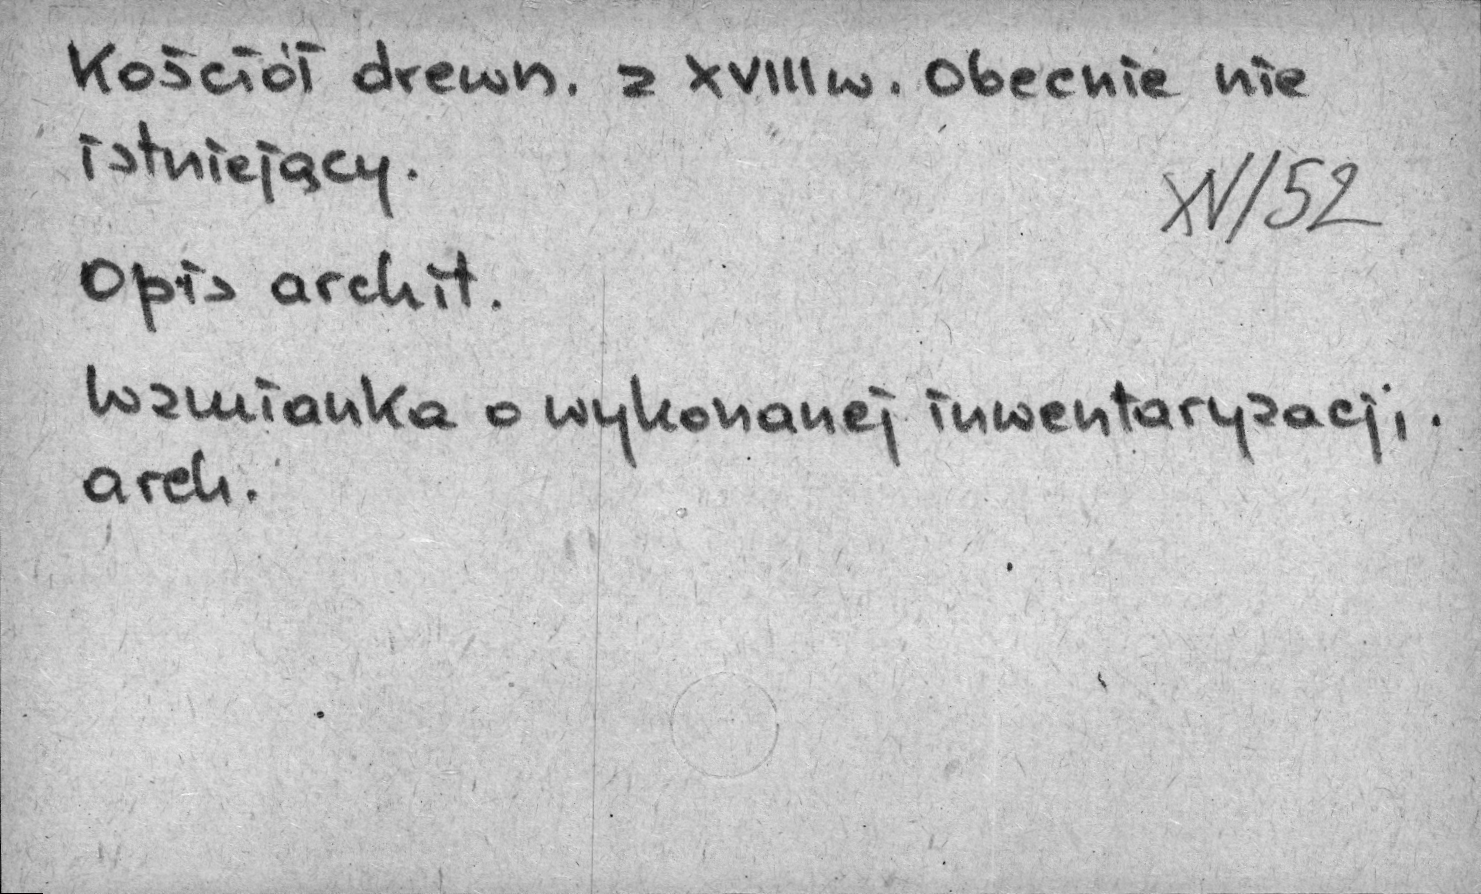 Kościół drewn. z XVIII w. Obecnie nie
istniejący.
XV/52
Opis archit.
Wzmianka o wykonanej inwentaryzacji.
arch.